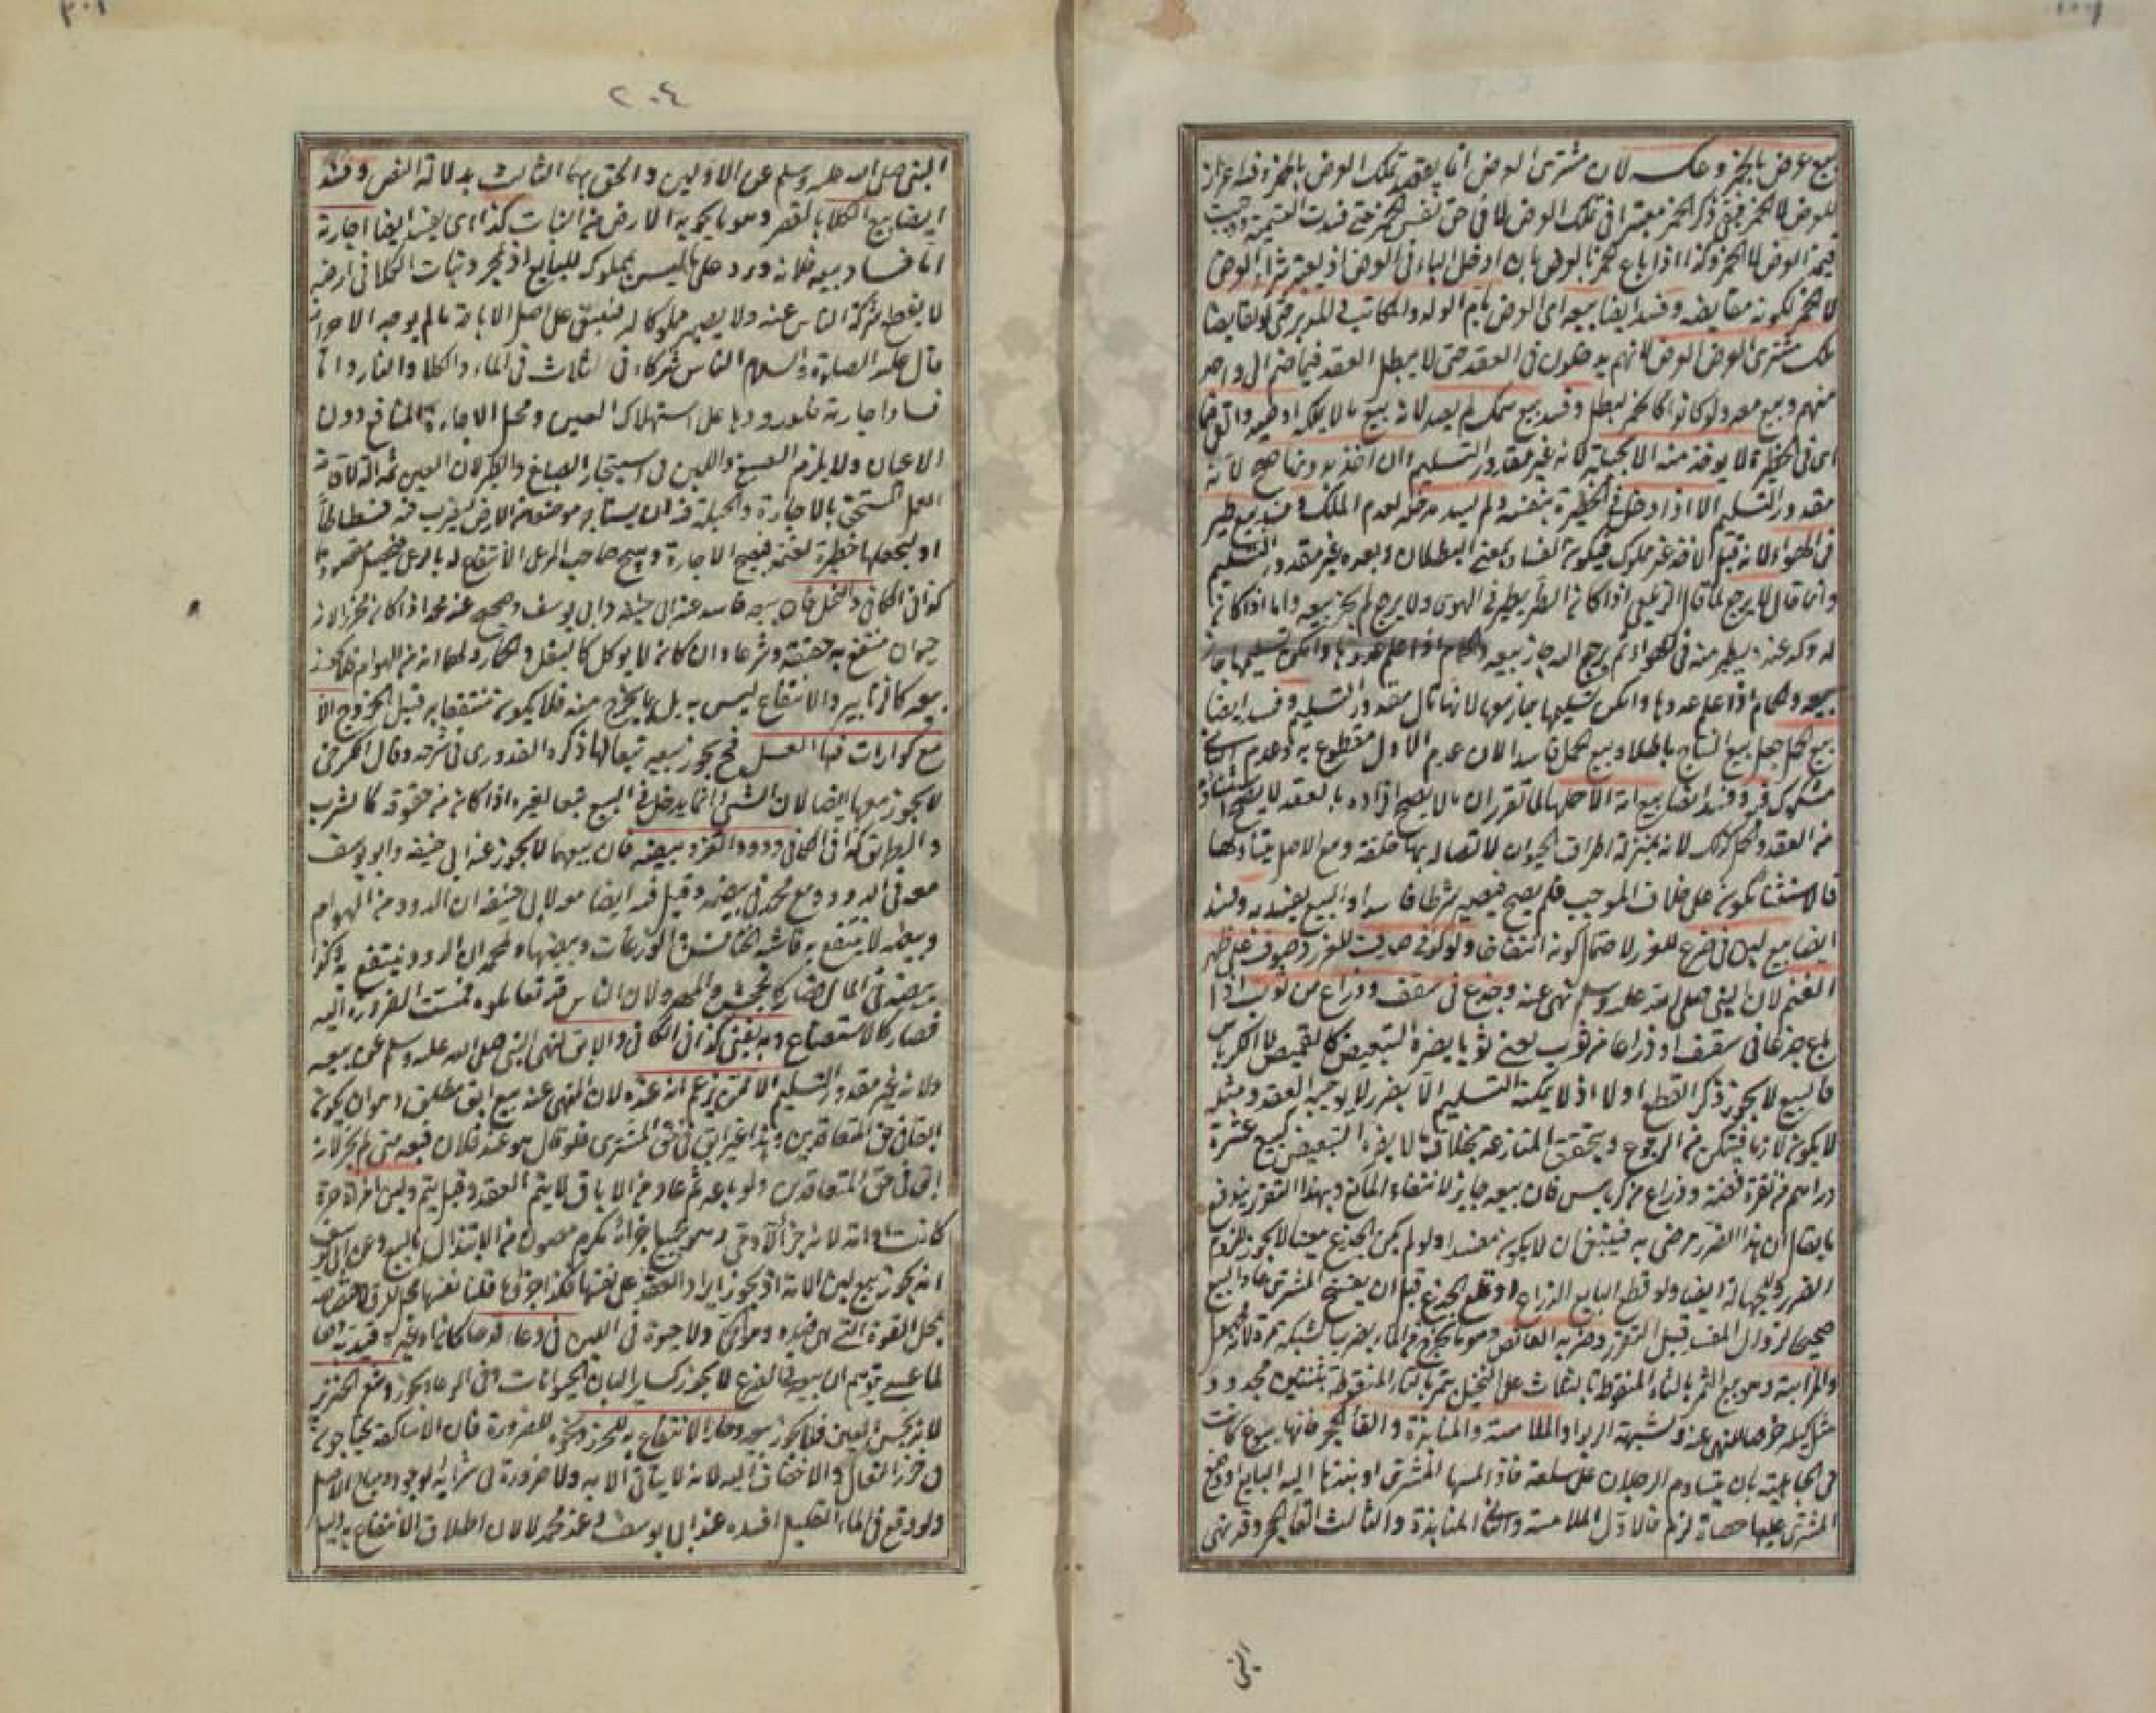 بيع عرض بالخمر وعكسه لان مشتري العرض انما يقصد تملك العرض بالخمر وفيه اعزاز
للعرض لا الخمر فبقي ذكر الخمر معتبرا في تملك العرض لا في حق نفس الخمر حتى فسدت التسمية ووجبت
قيمة العرض لا الخمر وكذا اذا باع الخمر بالعرض بان ادخل الباء في العرض اذ يعتبر شراء العرض
لا الخمر لكونه مقايضة وفسد ايضا بيعه اي العرض بام الولد والمكاتب والمدبر حتى لو تقابضا
ملك مشتري العرض العرض لانهم يدخلون في العقد حتى لا يبطل العقد فيما ضم الى واحد
منهم وبيع معه ولو كانوا كالخمر لبطل وفسد بيع سمك لم يصد لانه بيع ما لا يملكه او صيد والقي
اي في الحظيرة لا يوخذ منه الا بحيلة لانه غير مقدور التسليم وان اخذ بدونها صح لانه
مقدور التسليم الا اذا دخل في الحظيرة بنفسه ولم يسد مدخله لعدم الملك وفسد بيع طير
في الهواء لانه قبل الاخذ غير مملوك فيكون الفساد بمعنى البطلان وبعده غير مقدور التسليم
وانما قال لا يرجع لما قال الزيلعي اذا كان الطير يطير في الهوى ولا يرجع لم يجز بيعه واما اذا كان
له وكر عنده يطير منه في الهواء ثم يرجع اليه جاز بيعه
بيعه والحمام اذا علم عددها وامكن تسليمها جاز بيعها لانها مال مقدور التسليم وفسد ايضا
بيع الحمل جعل بيع النتاج باطلا وبيع الحمل فاسدا لان عدم الاول مقطوع به وعدم الثاني
مشكوك فيه وفسد ايضا بيع امة الا حملها لما تقرر ان ما لا يصح افراده بالعقد لا يصح استثناؤه
من العقد والحمل كذلك لانه بمنزلة اطراف الحيوان لاتصاله بها خلقة وبيع الاصل يتناولها
فالاستثناء يكون على خلاف الموجب فلم يصح فيصير شرطا فاسدا والبيع يفسد به وفسد
ايضا بيع لبن في ضرع للغرر لاحتمال كونه انتفاخا ولو كونه حليب للغرر وصوف على ظهر
الغنم لان النبي صلى الله عليه وسلم نهى عنه وجذع في سقف وذراع من ثوب اذا
باع جذعا في سقف او ذراعا من ثوب يعني ثوبا يضره التبعيض كالقميص لا الكرباس
فالبيع لا يجوز ذكر القطع او لا اذ لا يمكنه التسليم الا بضرر لا يوجبه العقد ومثله
لا يكون لازما فيتمكن من الرجوع ويتحقق المنازعة بخلاف ما لا يضره التبعيض كبيع عشرة
دراهم من نقرة فضة وذراع من كرباس فان بيعه جايز لانتفاء المانع وبهذا التقرير يندفع
ما يقال ان هذا الضرر مرضي به فينبغي ان لا يكون مفسدا ولو لم يكن الجذع معينا لا يجوز للزوم
الضرر وللجهالة ايضا ولو قطع البايع الذراع او قلع الجذع قبل ان يفسخ المشتري عاد البيع
صحيحا لزوال المفسد قبل التقرر وضربة القانص وهو ما يخرج من الماء بضرب الشبكة مرة لانه مجهول
والمزابنة وهو بيع الثمر بالثاء المنقوطة بالثلاث على النخيل بتمر بالتاء المنقوطة بثنتين مجدود
مثل كيله خرصا للنهي عنه ولشبهة الربوا والملامسة والمنابذة والقاء الحجر فانها بيوع كانت
في الجاهلية بان يتساوم الرجلان على سلعة فاذا لمسها المشتري او نبذها اليه البايع او وضع
المشتري عليها حصاة لزم فالاول الملامسة والثاني المنابذة والثالث القاء الحجر وقد نهى
النبي
٢٠٤
النبي صلى الله عليه وسلم عن الاولين والحق بهما الثالث بدلالة النص وفسد
ايضا بيع الكلا بالقصر وهو ما يحويه الارض من النبات كذا اي يفسد ايضا اجارته
اما فساد بيعه فلانه ورد على ما ليس بمملوك للبايع اذ بمجرد نبات الكلا في ارضه
لا ينقطع شركة الناس عنه ولا يصير مملوكا له فيبقى على اصل الاباحة ما لم يوجد الاحراز
قال عليه الصلوة والسلام الناس شركاء في الثلاث في الماء والكلا والنار واما
فساد اجارته فلورودها على استهلاك العين ومحل الاجارة المنافع دون
الاعيان ولا يلزم الصبغ واللبن في استيجار الصباغ والظئر لان العين ثمه آلة لاقامة
العمل المستحق بالاجارة والحيلة فيه ان يستاجر موضعا من الارض ليضرب فيه فسطاطا
او ليجعلها حظيرة لغنمه فيصح الاجارة ويبيح صاحب المرعى الانتفاع له بالرعي فيحصل مقصودهما
كذا في الكافي والنحل فان بيعه فاسد عند ابي حنيفة وابي يوسف وصحيح عند محمد اذا كان محرزا لانه
حيوان منتفع به حقيقة وشرعا وان كان لا يوكل كالبغل والحمار ولهما انه من الهوام فلا يجوز
بيعه كالزنابير والانتفاع ليس به بل بما يخرج منه فلا يكون منتفعا به قبل الخروج الا
مع كوارات فيها العسل فح يجوز بيعه تبعا لها ذكره القدوري في شرحه وقال الكرخي
لا يجوز معها ايضا لان الشئ انما يدخل في البيع تبعا لغيره اذا كان من حقوقه كالشرب
والطريق كذا في الكافي ودود القز وبيضه فان بيعهما لا يجوز عند ابي حنيفة وابو يوسف
معه في الدود ومع محمد في بيضه وقيل فيه ايضا معه لابي حنيفة ان الدود من الهوام
وبيضه لا ينتفع به فاشبه الخنافس والوزغات وبيضها ولمحمد ان الدود ينتفع به وكذا
بيضه في المآل فصار كالجحش والمهر ولان الناس قد تعاملوه فمست الضرورة اليه
فصار كالاستصناع وبه يفتى كذا في الكافي والابق لنهي النبي صلى الله عليه وسلم عن بيعه
ولانه غير مقدور التسليم الا ممن يزعم انه عنده لان المنهي عنه بيع ابق مطلق وهو ان يكون
ابقا في حق المتعاقدين وهذا غير ابق في حق المشتري فلو قال هو عند فلان فبعه مني لم يجز لانه
ابق في حق المتعاقدين ولو باعه ثم عاد من الاباق لا يتم العقد وقيل يتم ولبن امراة حرة
كانت او امة لانه جزء الآدمي وهو بجميع اجزائه مكرم مصون من الابتذال بالبيع وعن ابي يوسف
انه يجوز بيع لبن الامة اذ يجوز ايراد العقد على نفسها فكذا جزؤها قلنا نفسها محل للرق لاختصاصه
بمحل القوة التي هي ضده وهو الحي ولا حيوة في اللبن في وعاء قدحا كان او غيره قيده بهذا
لما عسى يتوهم ان بيعه في الضرع لا يجوز كساير البان الحيوانات وفي الوعاء يجوز وشعر الخنزير
لانه نجس العين فلا يجوز بيعه وجاز الانتفاع به للخرز ونحوه للضرورة فان الاساكفة يحتاجون
في خرز النعال والاخفاف اليه لانه لا يتأتى الا به ولا ضرورة في شرائه لوجوده مباح الاصل
ولو وقع في الماء القليل افسده عند ابي يوسف وعند محمد لا لان اطلاق الانتفاع به دليل